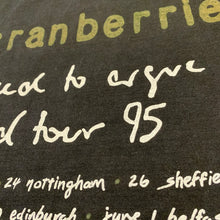 ranberrie
ed to argue
d tour 95
24 nottingham • 26 sheffie
edinburgh • june 1 belfas